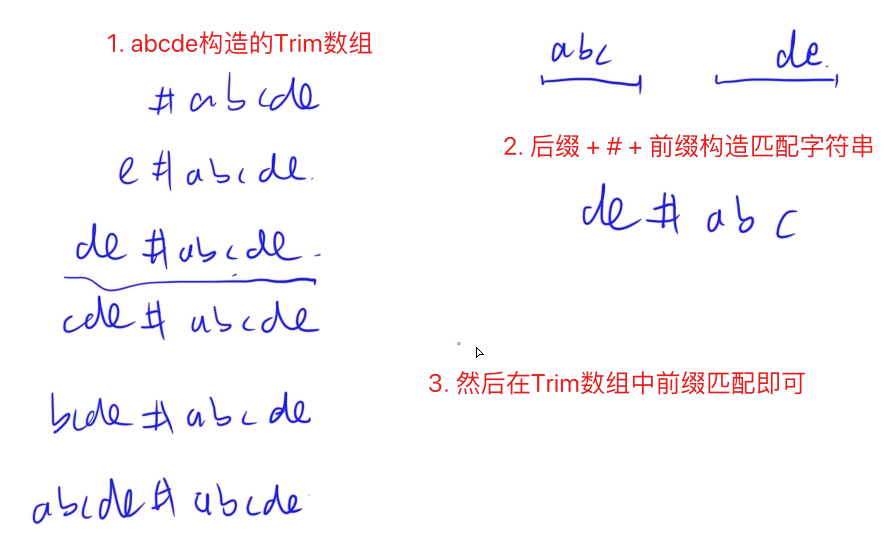 1. abcde构造的Trim数组
#abcde
e#abcde
de#abcde
cde#abcde
bcde#abcde
abcde#abcde
abc de
2. 后缀 + # + 前缀构造匹配字符串
de#abc
3. 然后在Trim数组中前缀匹配即可